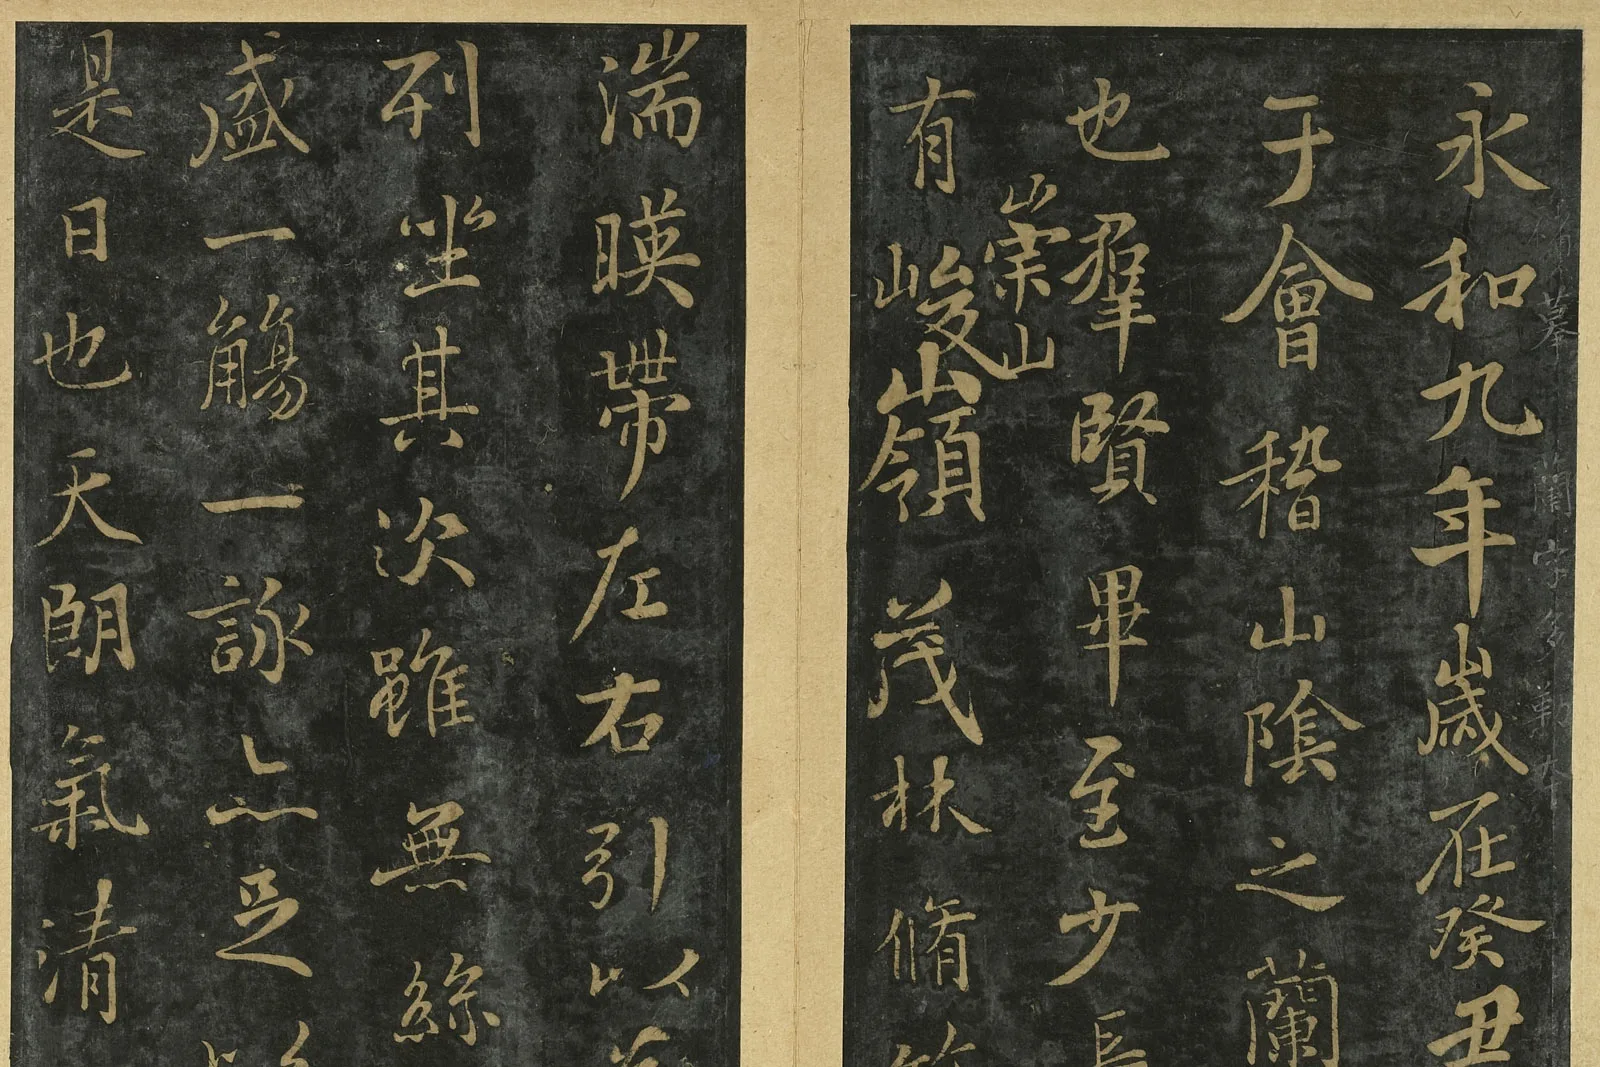 永和九年歲在癸丑
于會稽山陰之蘭
也羣賢畢至少長
崇山
有峻嶺茂林脩
湍暎帶左右引以
列坐其次雖無絲
盛一觴一詠亦足
是日也天朗氣清